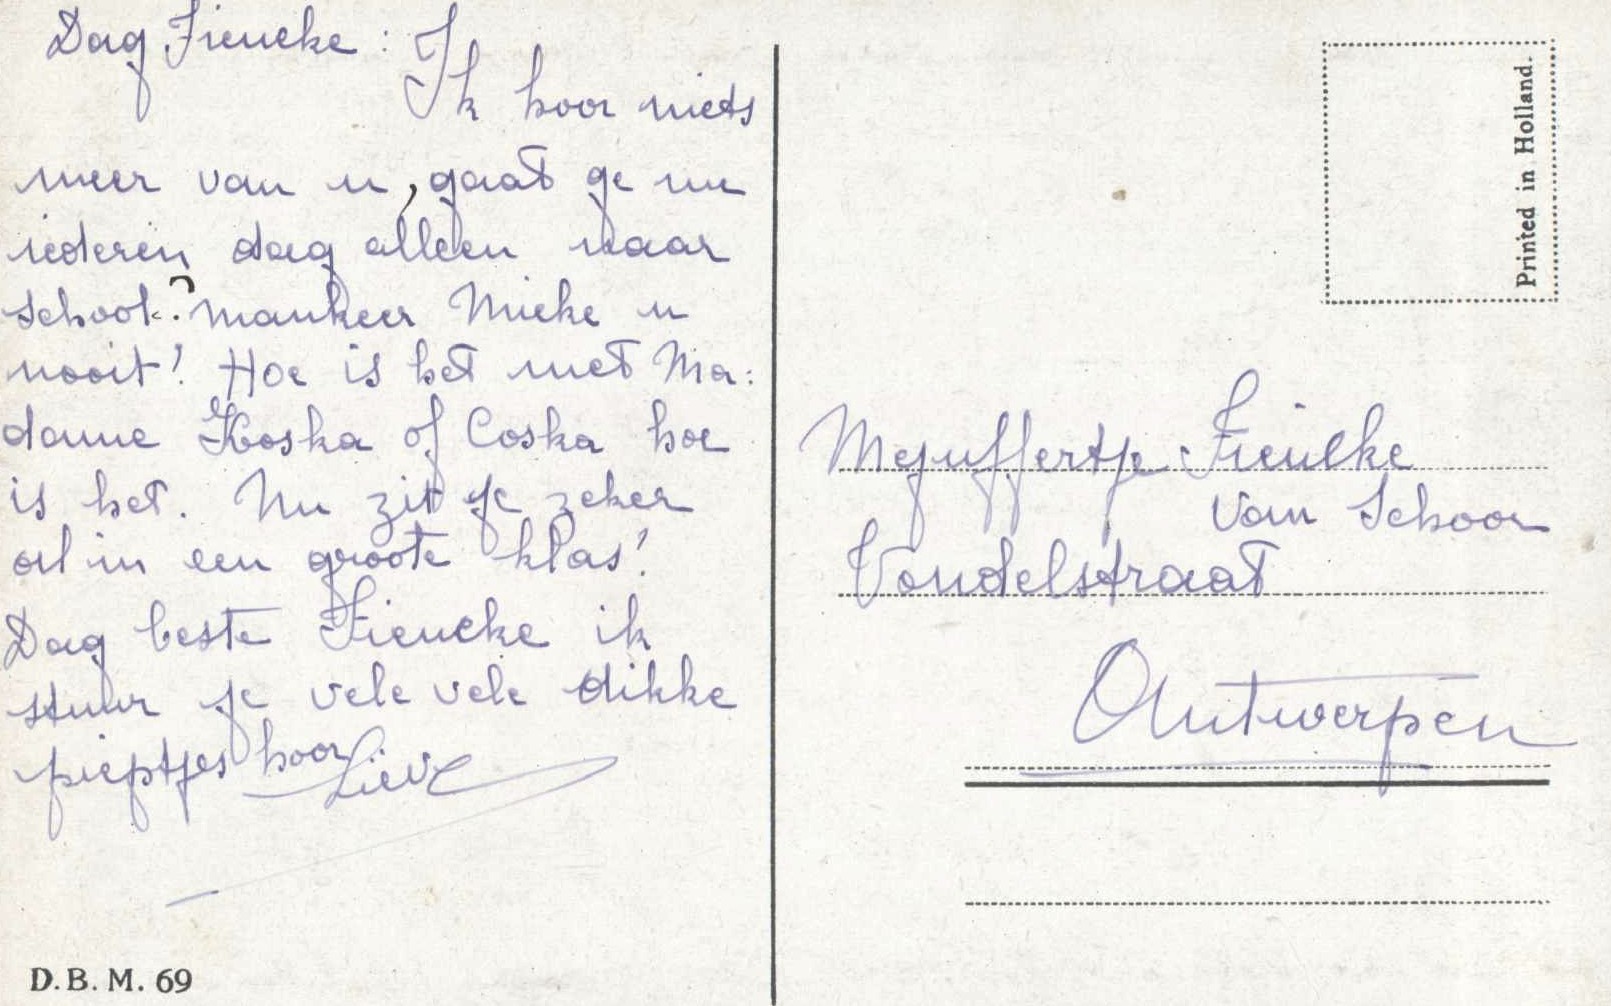 Dag Fieneke :
Ik hoor niets
meer van u, gaat ge nu
iederen dag alleen naar
school? mankeer Mieke u
nooit! Hoe is het met Ma:
dame Koska of Coska hoe
is het. Nu zit je zeker
al in een groote klas!
Dag beste Fieneke ik
stuur je vele vele dikke
pieptjes hoor
Lieve
D.B.M. 69
Printed in Holland.
Mejuffertje Fieneke
van Schoor
Vondelstraat
Antwerpen